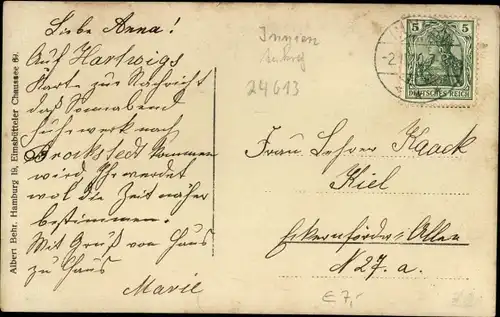 Liebe Anna!
Auf Hartwigs
Karte zur Nachricht
daß Sonnabend
Fuhrwerk nach
Brockstedt kommen
wird, Ihr werdet
wol die Zeit näher
bestimmen.
Mit Gruß von Haus
zu Haus
Marie
Albert Behr, Hamburg 19, Eimsbütteler Chaussee
Innien
24613
5 5
DEUTSCHES REICH
Frau Lehrer Kaack
Kiel
Eckernförder Allee
N 27. a.
€ 7,-